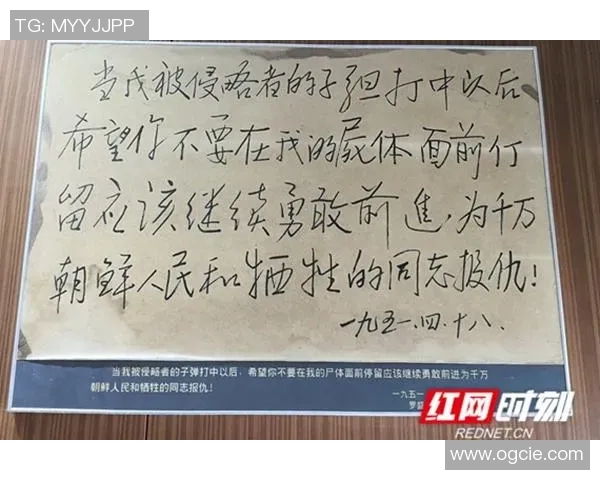 TG: MYYJJPP
当我被侵略者的子弹打中以后
希望你不要在我的屍体面前仃
留应该继续勇敢前進,为千万
朝鲜人民和牺牲的同志报仇!
一九五一.四.十八.
当我被侵略者的子弹打中以后,希望你不要在我的尸体面前停留应该继续勇敢前进为千万
朝鲜人民和牺牲的同志报仇!
一九五一
罗盛
红网时刻
REDNET.CN
www.ogcie.com